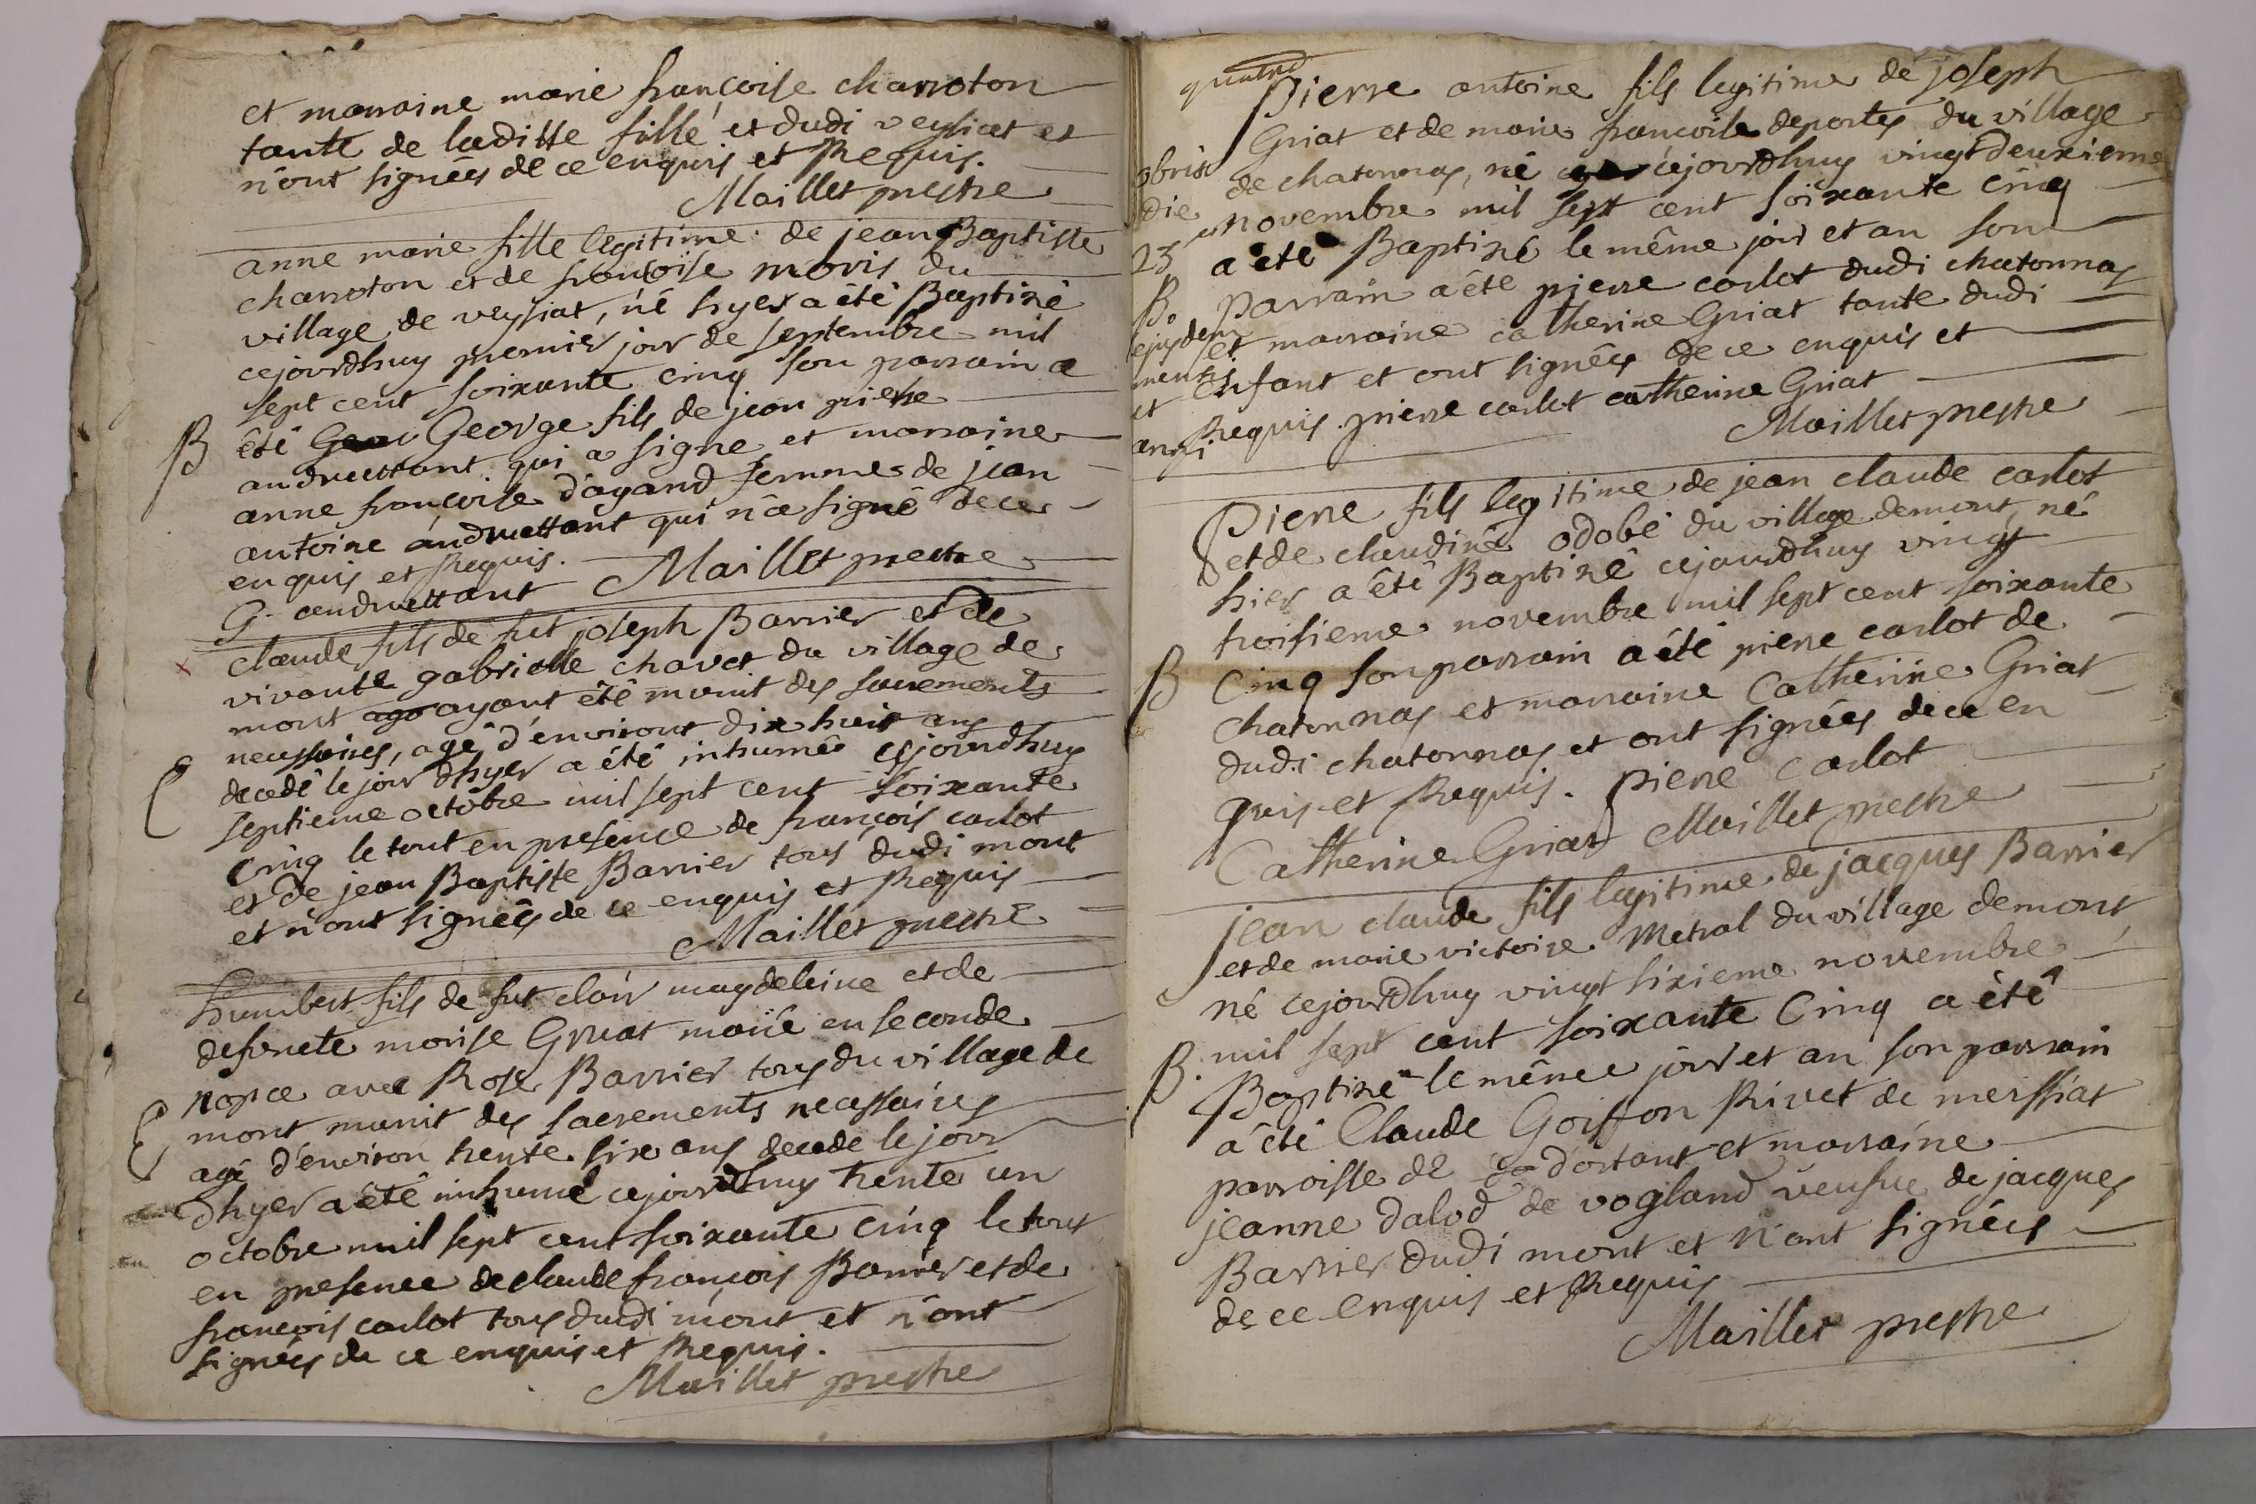 et marraine marie françoise charroton
tante de laditte fille et dudi veysiat et
n'ont signéés de ce enquis et Requis.
Maillet prestre
anne marie fille legitime de jean Baptiste
charroton et de françoise moris du
village de veysiat, né hyer a été Baptizé
cejourdhuy premier jour de septembre mil
sept cent soixante cinq son parrain a
B
été George fils de jean pierre
andruettant qui a signe et marraine
anne françoise dagand femme de jean
antoine andruettant qui n'a signé de ce
enquis et Requis.
G. andruettant Maillet prestre
claude fils de fut joseph Barrier et de
vivante gabrielle chavet du village de
mont ayant été munit des sacrements
necessaires, agé d'environt dix huit ans
decedé le jour d'hyer a été inhumée cejourdhuy
septieme octobre mil sept cent soixante
cinq le tout en presence de françois carlot
et de jean Baptiste Barrier tous dudi mont
et n'ont signéés de ce enquis et Requis
Maillet prestre
humbert fils de fut clair magdeleine et de
defuncte morise Gruat mariée en seconde
nopce avec Rose Barrier tous du village de
mont munit des sacrements necessaires
agé d'environ trente six ans decedé le jour
d'hyer a été inhumé cejourdhuy trente un
octobre mil sept cent soixante cinq le tout
en presence de claude françois Barrier et de
françois carlot tous dudi mont et n'ont
signéés de ce enquis et Requis.
Maillet prestre
Pierre antoine fils legitime de joseph
Griat et de marie françoise deportes du village
de chatonnas, né cejourdhuy vingt deuxieme
novembre mil sept cent soixante cinq
23
a été Baptizé le même jour et an son
B.
parrain a été pierre carlot dudi chatonnas
ejusdem
et marraine catherine Griat tante dudi
mentis
enfant et ont signéés de ce enquis et
et
anni
Requis. pierre carlot catherine Griat
Maillet prestre
Pierre fils legitime de jean claude carlot
et de claudine odobé du village demont, né
hier a été Baptizé cejourdhuy vingt
troisieme novembre mil sept cent soixante
B
Cinq son parrain a été pierre carlot de
chatonnas et marraine Catherine Griat
dudi chatonnas et ont signéés de ce en
quis et Requis. Pierre Carlot
Catherine Griat Maillet prestre
jean claude fils legitime de jacques Barrier
et de marie victoire Metral du village demont
né cejourdhuy vingt sixieme novembre
mil sept cent soixante Cinq a été
B.
Baptizé le même jour et an son parrain
a été Claude Goiffon Rivet de merssiat
parroisse de d'ortant et marraine
jeanne dalod de vogland veufve de jacques
Barrier dudi mont et n'ont signéés
de ce Enquis et Requis
Maillet prestre